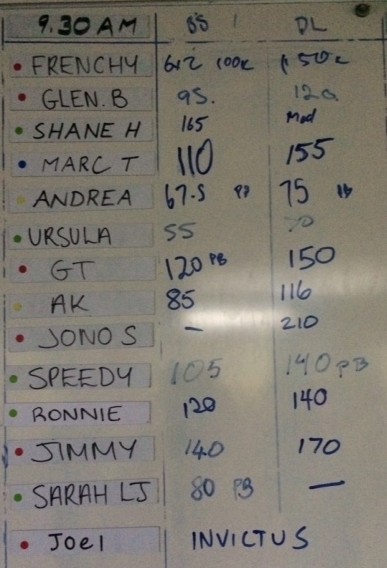 9.30 AM BS DL
FRENCHY 100k 150k
GLEN.B 95. 120
SHANE H 165 Med
MARC T 110 155
ANDREA 67.5 PB 75 PB
URSULA 55 70
GT 120 PB 150
AK 85 116
JONO S — 210
SPEEDY 105 140 PB
RONNIE 120 140
JIMMY 140 170
SARAH LJ 80 PB —
Joel INVICTUS